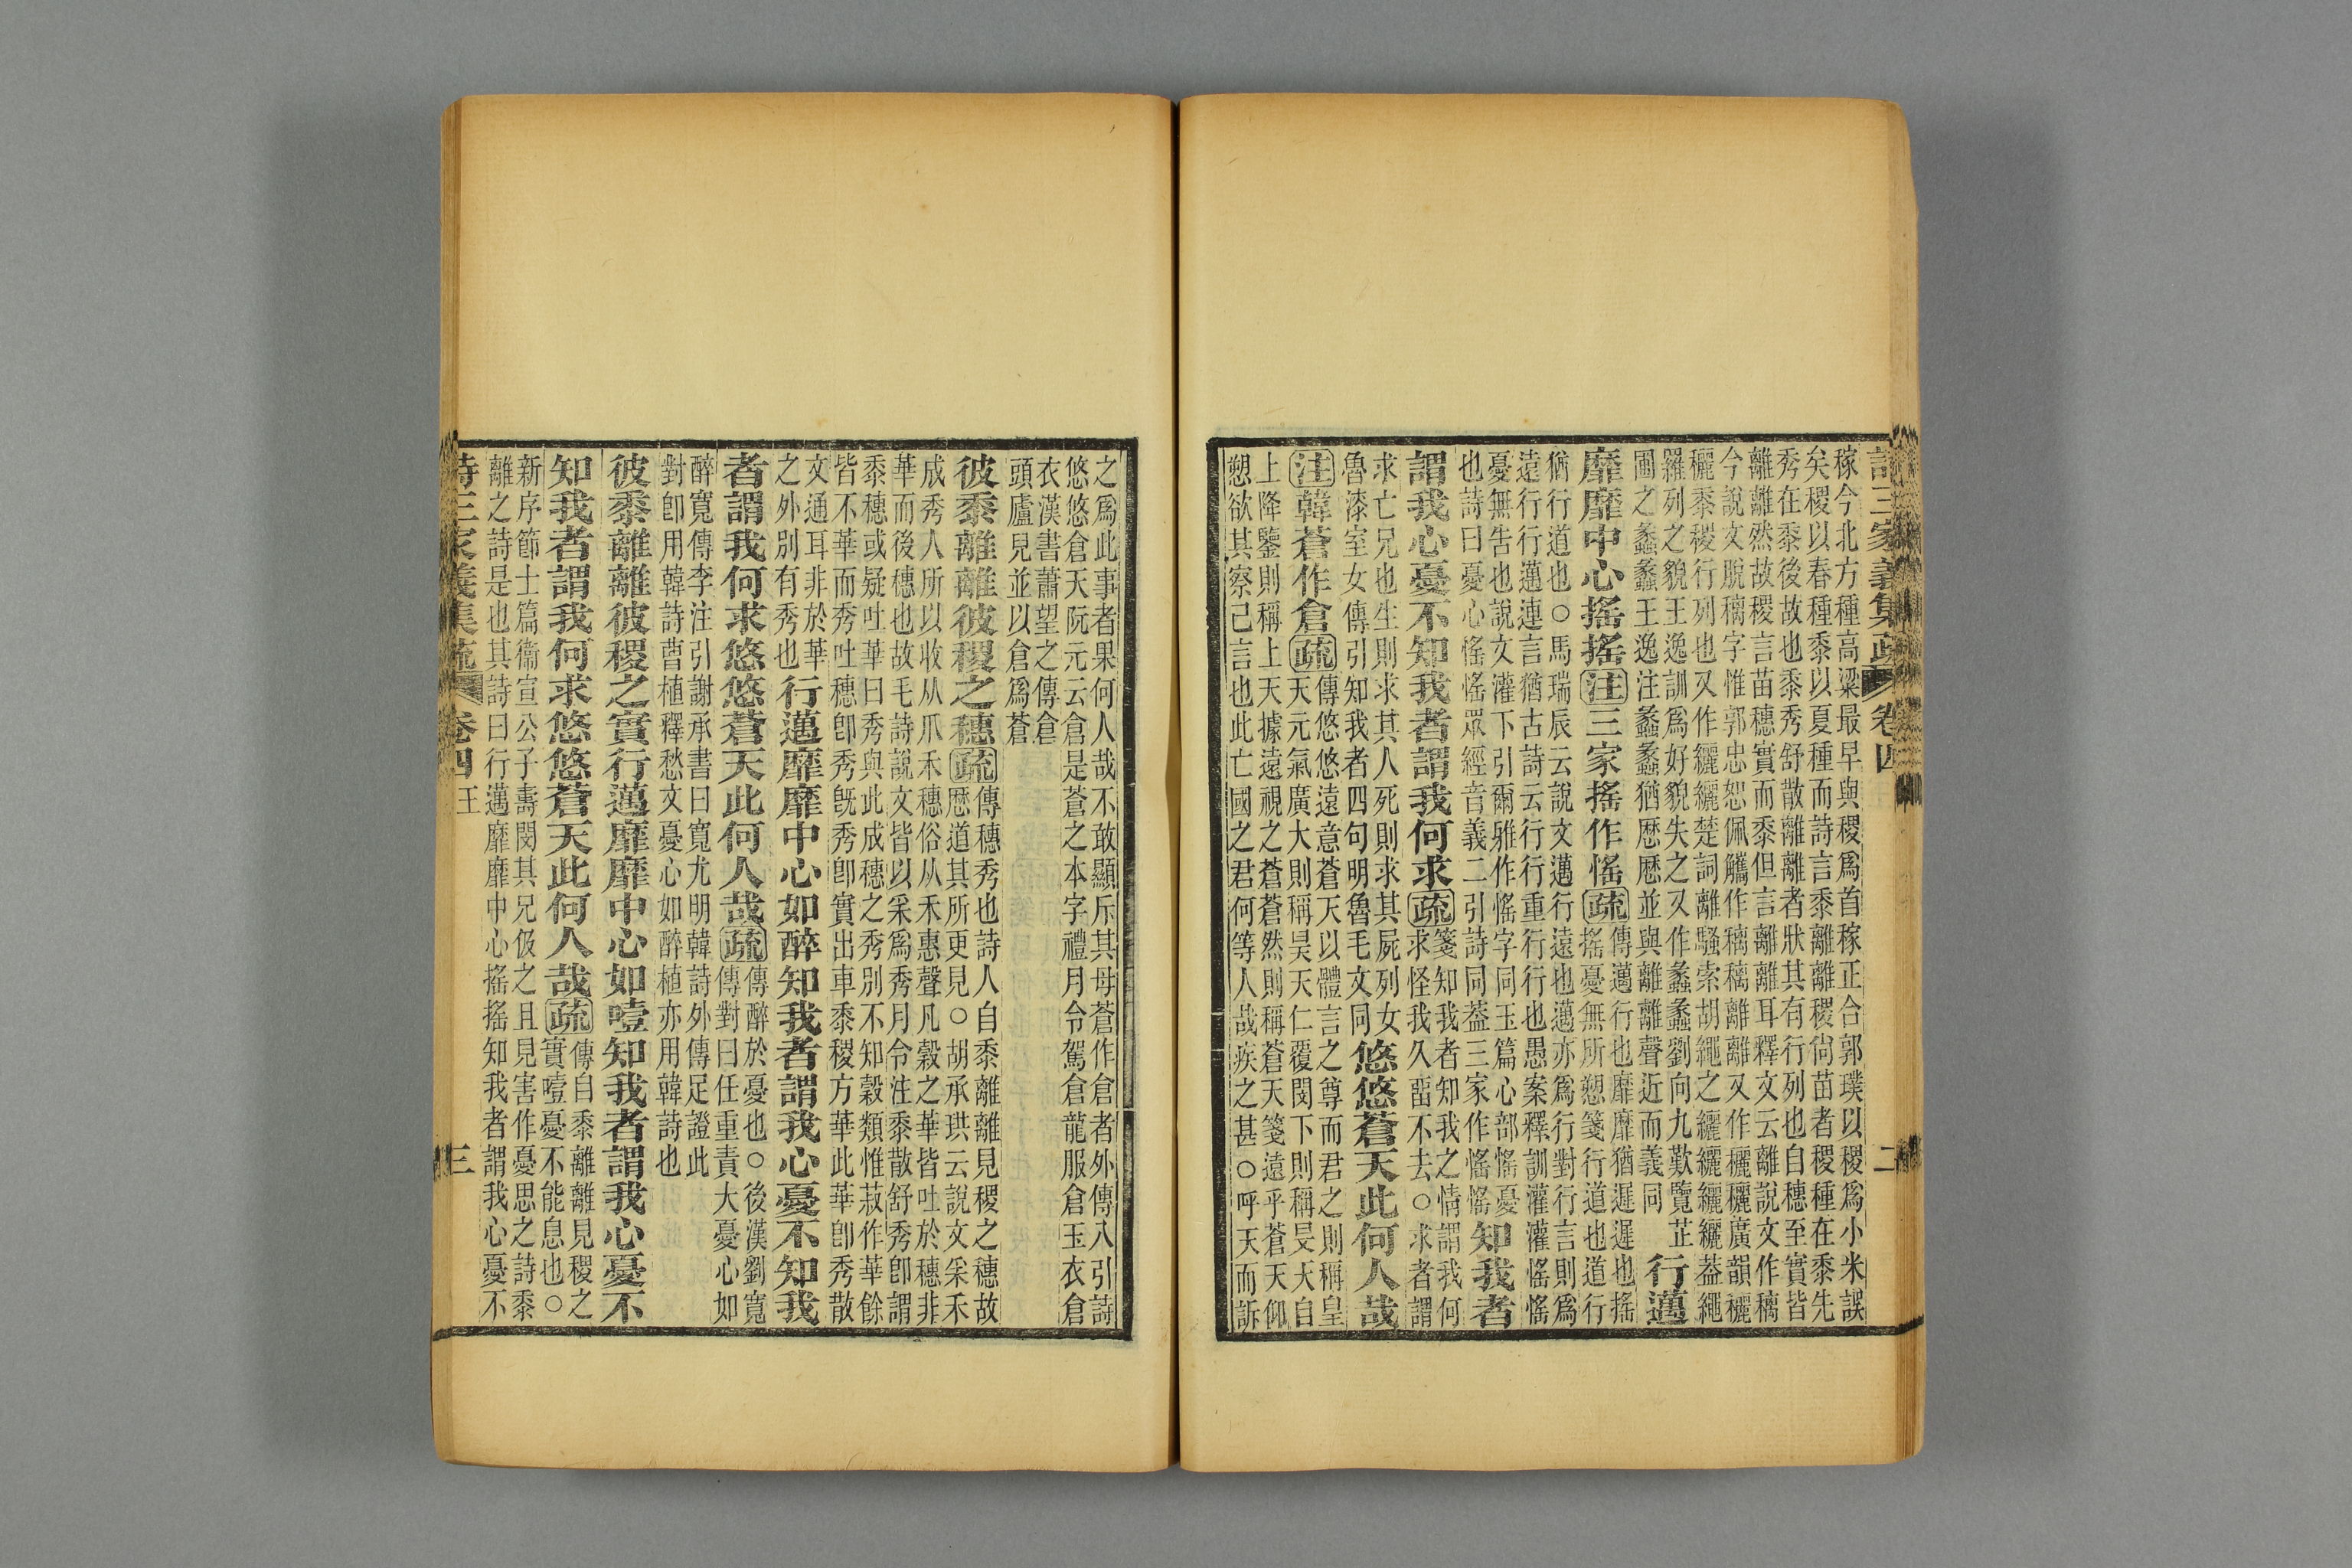 詩三家義集疏 卷四 二
稼今北方種高粱最早與稷爲首稼正合郭璞以稷爲小米誤
矣稷以春種黍以夏種而詩言黍離離稷尚苗者稷種在黍先
秀在黍後故也黍秀舒散離離者狀其有行列也自穗至實皆
離離然故稷言苗穗實而黍但言離離耳釋文云離說文作穲
今說文脫穲字惟郭忠恕佩觿作穲穲離離又作穲穲廣韻穲
穲黍稷行列也又作纚纚楚詞離騷索胡繩之纚纚纚纚葢繩
羅列之貌王逸訓爲好貌失之又作蠡蠡劉向九歎覽芷
圃之蠡蠡王逸注蠡蠡猶歷歷並與離離聲近而義同
行邁
靡靡中心搖搖注三家搖作愮疏
傳邁行也靡靡猶遲遲也搖
搖憂無所愬箋行道也道行
猶行道也○馬瑞辰云說文邁行遠也邁亦爲行對行言則爲
遠行行邁連言猶古詩云行行重行行也愚案釋訓灌灌愮愮
憂無告也說文灌下引爾雅作愮字同玉篇心部愮憂
也詩曰憂心愮愮眾經音義二引詩同葢三家作愮愮
知我者
謂我心憂不知我者謂我何求疏
箋知我者知我之情謂我何
求怪我久畱不去○求者謂
求亡兄也生則求其人死則求其屍列女
魯漆室女傳引知我者四句明魯毛文同
悠悠蒼天此何人哉
注韓蒼作倉疏
傳悠悠遠意蒼天以體言之尊而君之則稱皇
天元氣廣大則稱昊天仁覆閔下則稱旻天自
上降鑒則稱上天據遠視之蒼蒼然則稱蒼天箋遠乎蒼天仰
愬欲其察己言也此亡國之君何等人哉疾之甚○呼天而訴
之爲此事者果何人哉不敢顯斥其母蒼作倉者外傳八引詩
悠悠倉天阮元云倉是蒼之本字禮月令駕倉龍服倉玉衣倉
衣漢書蕭望之傳倉
頭廬兒並以倉爲蒼
彼黍離離彼稷之穗疏
傳穗秀也詩人自黍離離見稷之穗故
歷道其所更見○胡承珙云說文采禾
成秀人所以收从爪禾穗俗从禾惠聲凡穀之華皆吐於穗非
華而後穗也故毛詩說文皆以采爲秀月令注黍散舒秀卽謂
黍穗或疑吐華曰秀與此成穗之秀別不知穀類惟菽作華餘
皆不華而秀吐穗卽秀旣秀卽實出車黍稷方華此華卽秀散
文通耳非於華
之外別有秀也
行邁靡靡中心如醉知我者謂我心憂不知我
者謂我何求悠悠蒼天此何人哉疏
傳醉於憂也○後漢劉寬
傳對曰任重責大憂心如
醉寬傳李注引謝承書曰寬尤明韓詩外傳足證此
對卽用韓詩曹植釋愁文憂心如醉植亦用韓詩也
彼黍離離彼稷之實行邁靡靡中心如噎知我者謂我心憂不
知我者謂我何求悠悠蒼天此何人哉疏
傳自黍離離見稷之
實噎憂不能息也○
新序節士篇衞宣公子壽閔其兄伋之且見害作憂思之詩黍
離之詩是也其詩曰行邁靡靡中心搖搖知我者謂我心憂不
詩三家義集疏 卷四 王 三